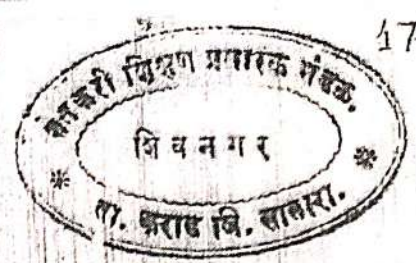 17
शेतकरी शिक्षण प्रसारक मंडळ.
शिवनगर
ता. कराड जि. सातारा.